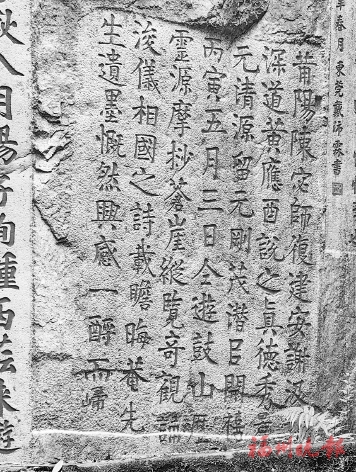 春月東莞
莆陽陳宓師復建安謝汲
深道黃應酉說之真德秀景
元清源留元剛茂潛㠯開禧
丙寅五月三日仝遊鼓山歷
靈源摩抄蒼崖縱覽奇觀論
浚儀相國之詩載瞻晦菴先
生遺墨慨然興感一酹而歸
秋八月來遊
福州晚報